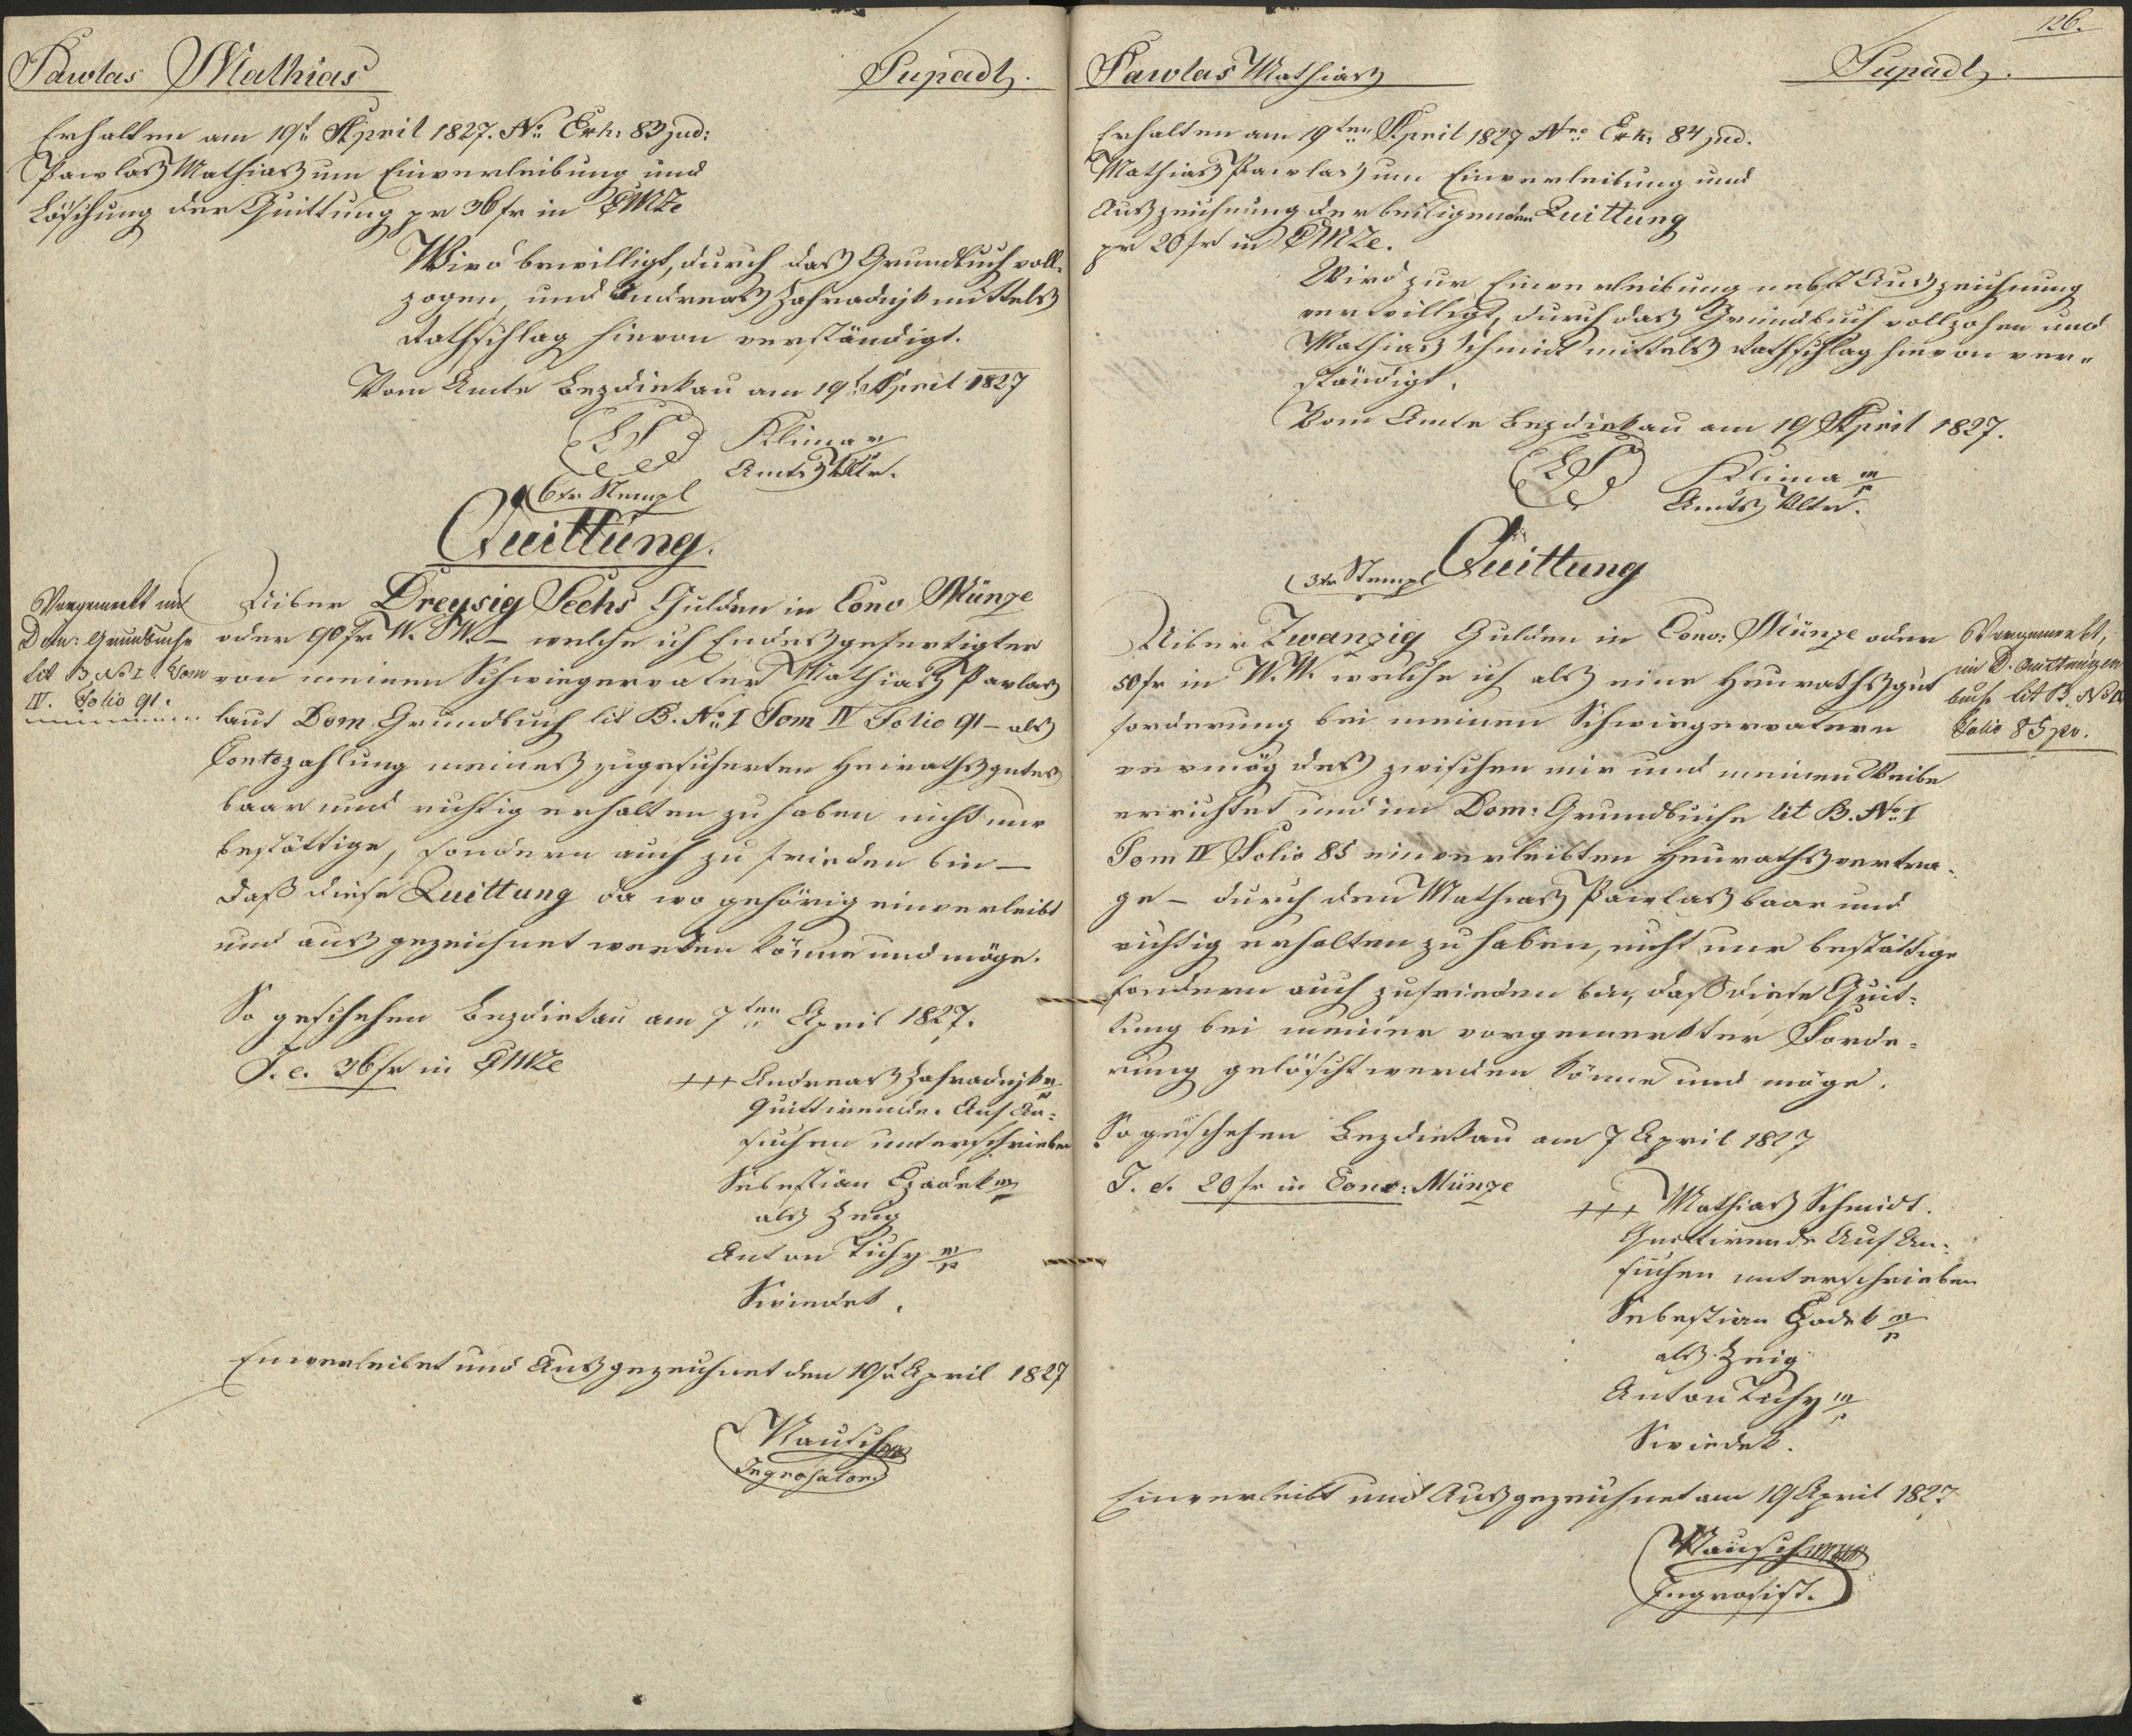 Pawlas Mathias
Supadl.
Erhalten am 19t April 1827. No Exh: 83 jud:
Pawlas Mathias um Einverleibung und
Löschung der Quittung pr 36 fr in CMze
Wird bewilligt, durch das Grundbuch voll-
zogen, und Andreas Zahradnik mittels
Rathschlag hievon verständigt.
Vom Amte Bezdiekau am 19t April 1827
LS Klima
Amts Vltr.
6 xr Stempl
Quittung.
Vorgemerkt im
Dom: Grundbuche
lit B. No I Tom
IV. Folio 91.
Uiber Dreysig Sechs Gulden in Conv Münze
oder 90 fr W. W. – welche ich Endesgefertigter
von meinen Schwiegervater Mathias Pavlas
laut Dom Grundbuch lit B. No I Tom IV Folio 91 – als
Contozahlung meines zugesicherten Heirathsgutes
baar und richtig erhalten zu haben nicht nur
bestättige, sondern auch zu frieden bin –
daß diese Quittung da wo gehörig einverleibt
und ausgezeichnet werden könne und möge.
So geschehen Bezdiekau am 7ten April 1827.
I. e. 36 fr in CMze
+++ Andreas Zahradnik
Quittirende. Auf An-
suchen unterschrieben
Sebestian Czadek mp
als Zeug
Anton Tichy mp
Swiedek.
Einverleibet und Ausgezeichnet den 19t April 1827
Mausch
Ingrosator
126.
Pawlas Mathias
Supadl.
Erhalten am 19ten April 1827 Nro Exh: 84 jud.
Mathias Pawlas um Einverleibung und
Auszeichnung der beiligenden Quittung
pr 20 fr in CMze.
Wird zur Einverleibung nebst Auszeichnung
verwilligt, durch das Grundbuch vollzohen und
Mathias Schmidt mittels Rathschlag hievon ver-
ständigt.
Vom Amte Bezdiekau am 19 April 1827.
LS Klima mp
Amts Vltr.
3 xr Stempl Quittung
Uiber Zwanzig Gulden in Conv: Münze oder
50 fr in W. W. welche ich als eine Heurathsgut
forderung bei meinen Schwiegervatern
vermög des zwischen mir und meinen Weibe
errichtet und im Dom: Grundbuche lit B. No I
Tom IV Folio 85 einverleibten Heurathsvertra-
ge – durch den Mathias Pawlas baar und
richtig erhalten zu haben, nicht nur bestättige
sondern auch zufrieden bin, daß diese Quit-
tung bei meiner vorgemerkter Forde-
rung gelöscht werden könne und möge.
Vorgemerkt,
im D. Quittungen
buch lit B. No
Folio 85 pv.
So geschehen Bezdiekau am 7 April 1827
I. e. 20 fr in Conv: Münze
+++ Mathias Schmidt.
Quittirende Auf An-
suchen unterschrieben
Sebestian Czadek mp
als Zeig
Anton Tichy mp
Swiedek.
Einverleibt und Ausgezeichnet am 19 April 1827
Mausch
Ingrosist.